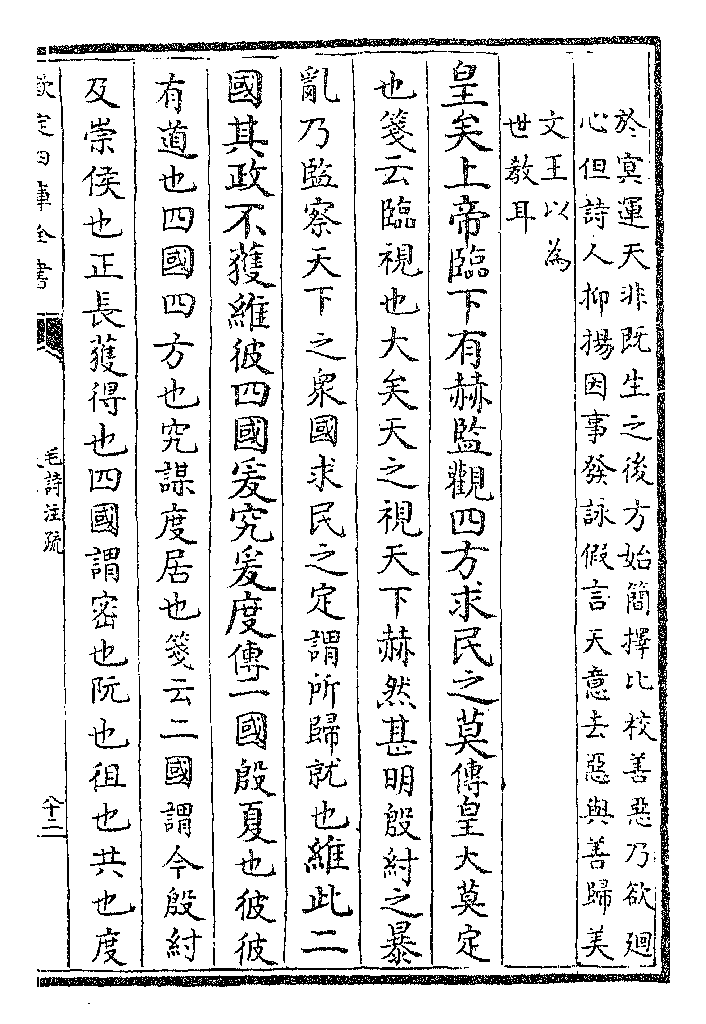 於冥運天非既生之後方始簡擇比校善惡乃欲廻
心但詩人抑揚因事發詠假言天意去惡與善歸美
文王以為
世教耳
皇矣上帝臨下有赫監觀四方求民之莫傳皇大莫定
也箋云臨視也大矣天之視天下赫然甚明殷紂之暴
亂乃監察天下之衆國求民之定謂所歸就也維此二
國其政不獲維彼四國爰究爰度傳二國殷夏也彼彼
有道也四國四方也究謀度居也箋云二國謂今殷紂
及崇侯也正長獲得也四國謂密也阮也徂也共也度
欽定四庫全書
毛詩注疏
十二